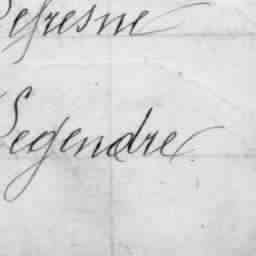 Lefresne
Legendre